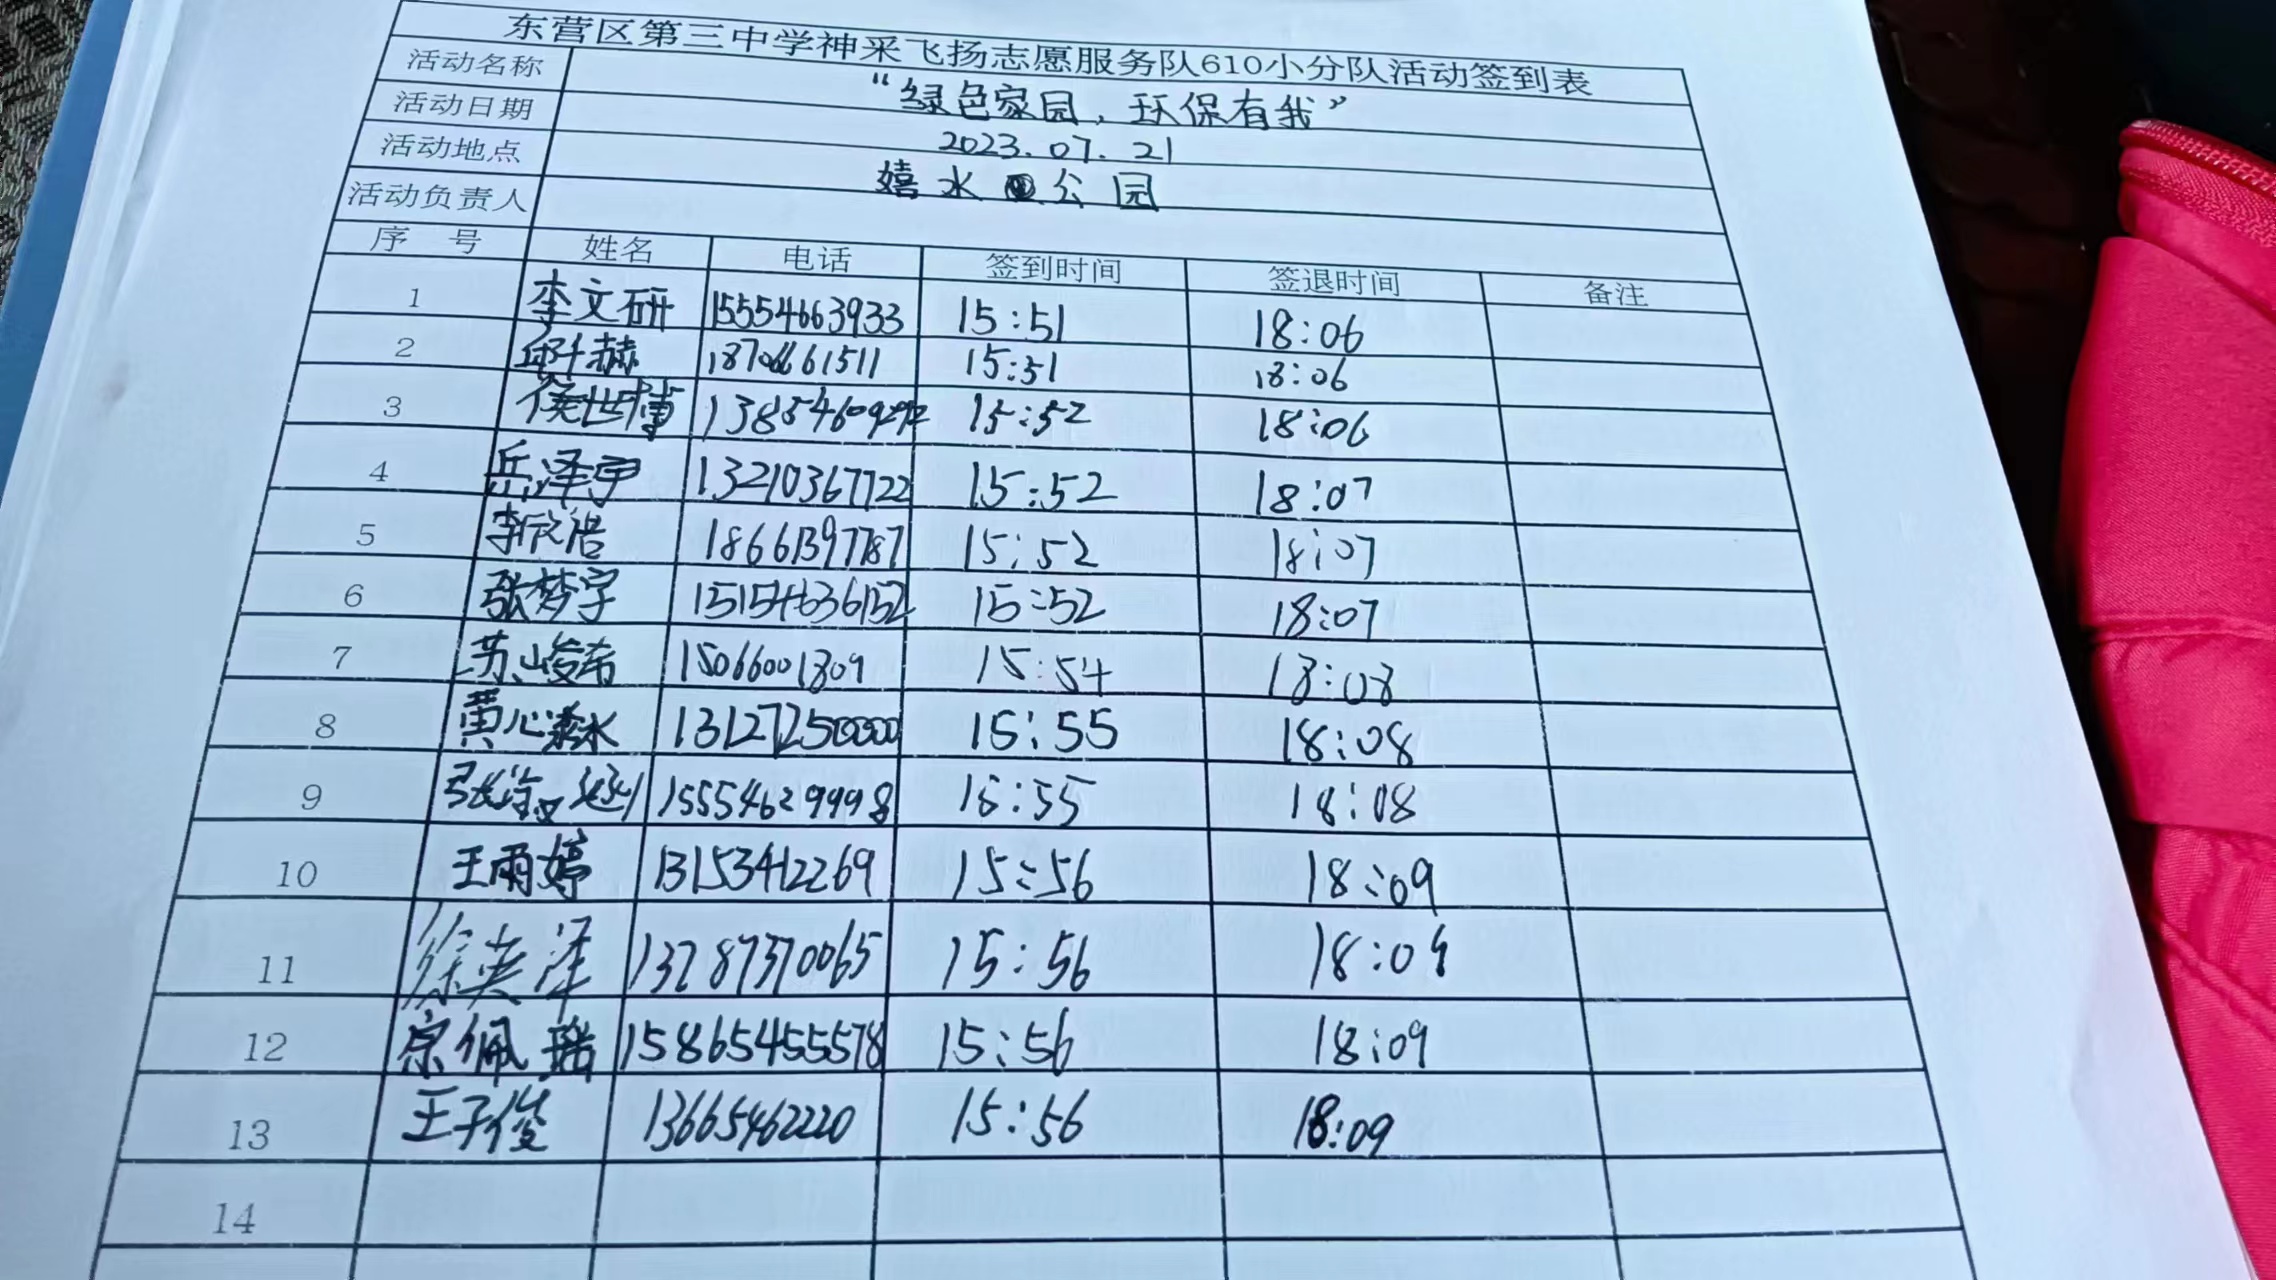 东营区第三中学神采飞扬志愿服务队610小分队活动签到表
活动名称 “绿色家园，环保有我”
活动日期 2023.07.21
活动地点 嬉水公园
活动负责人
序 号 姓名 电话 签到时间 签退时间 备注
1 李文研 15554663933 15:51 18:06
2 邱千赫 18706661511 15:51 18:06
3 侯世博 15:52 18:06
4 岳泽宇 13210367722 15:52 18:07
5 18661397787 15:52 18:07
6 张梦宇 15154636152 15:52 18:07
7 苏峻希 15066001309 15:54 18:08
8 黄心淼 13127250000 15:55 18:08
9 15554629998 15:55 18:08
10 王雨婷 13153412269 15:56 18:09
11 徐英泽 13287370065 15:56 18:09
12 宗佩瑶 15865455578 15:56 18:09
13 王子俊 13665462220 15:56 18:09
14